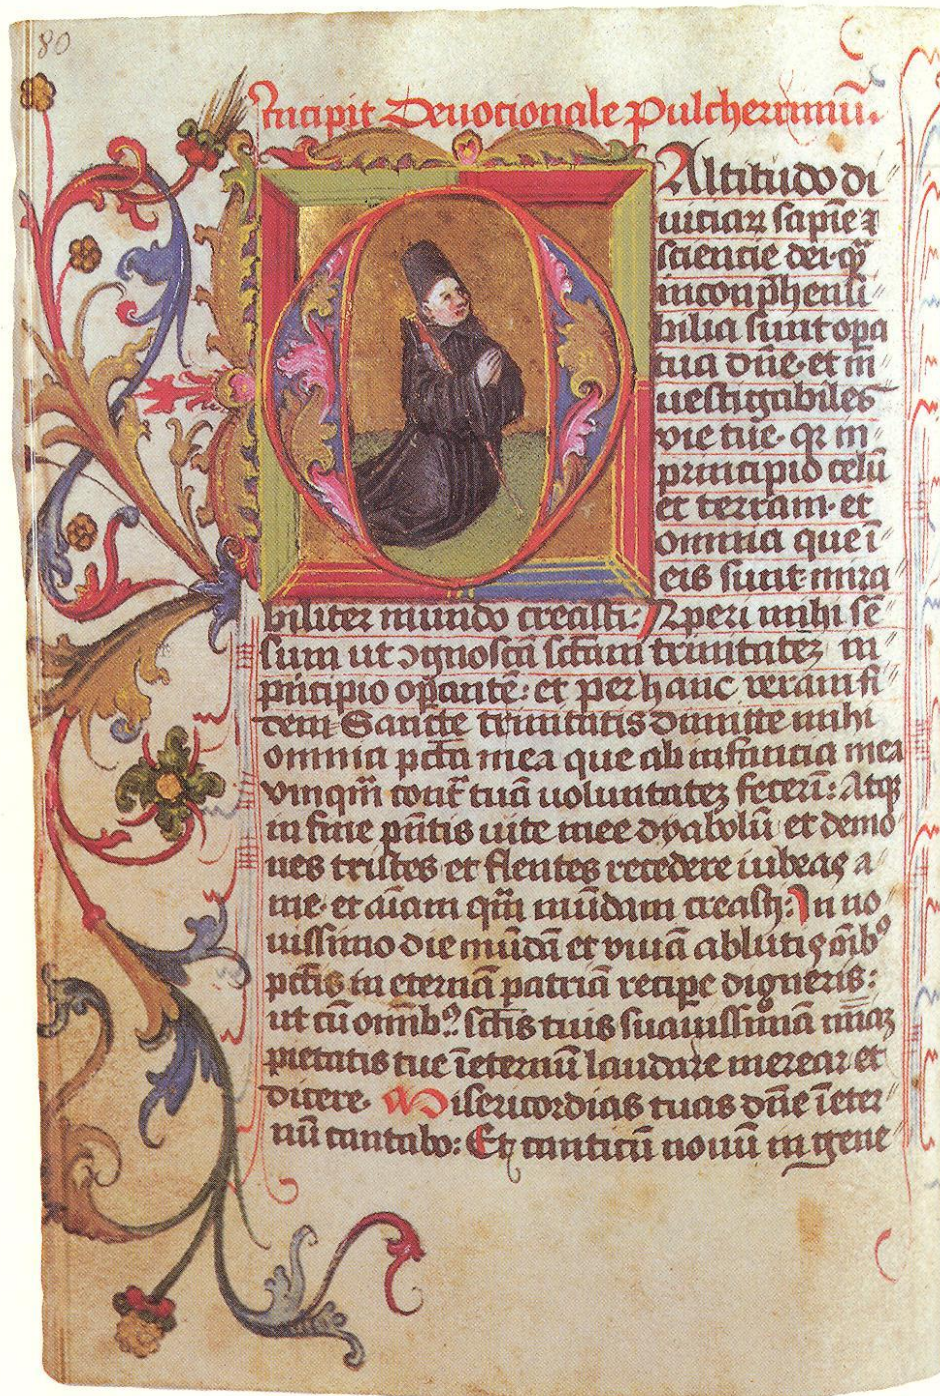 80
Incipit Deuocionale Pulcherrimū.
O Altitudo di
uiciaꝝ sapiē ⁊
sciencie dei· qꝫ
inconp̄hensi
bilia sunt opa
tua dn̄e· et in
uestigabiles
vie tue· qꝛ in
principio celū
et terram· et
omnia que ī
eis sunt· mira
biliter mundo creasti: Aperi mihi sē
sum ut ꝯgnoscā sc̄tam trinitateꝫ in
pͥncipio op̄antē: et per hanc veram fi
dem Sancte trinitatis dimitte mihi
omnia pc̄tā mea que ab infancia mea
vnqm̄ cont̄ tuā uoluntateꝫ fecerī: Atqꝫ
in fine pn̄tis uite mee dyabolū et demo
nes tristes et flentes recedere iubeas a
me· et aīam qm̄ mūdam creasti: In no
uissimo die mūdā et viuā ablutis oīb⁹
pc̄tis in eternā patriā recipe digneris:
ut cū omīb⁹ sc̄tis tuis suauissimā mīaꝫ
pietatis tue īeternū laudare merear et
dicere· Misericordias tuas dn̄e īeter
nū cantabo: Et canticū nouū in gene